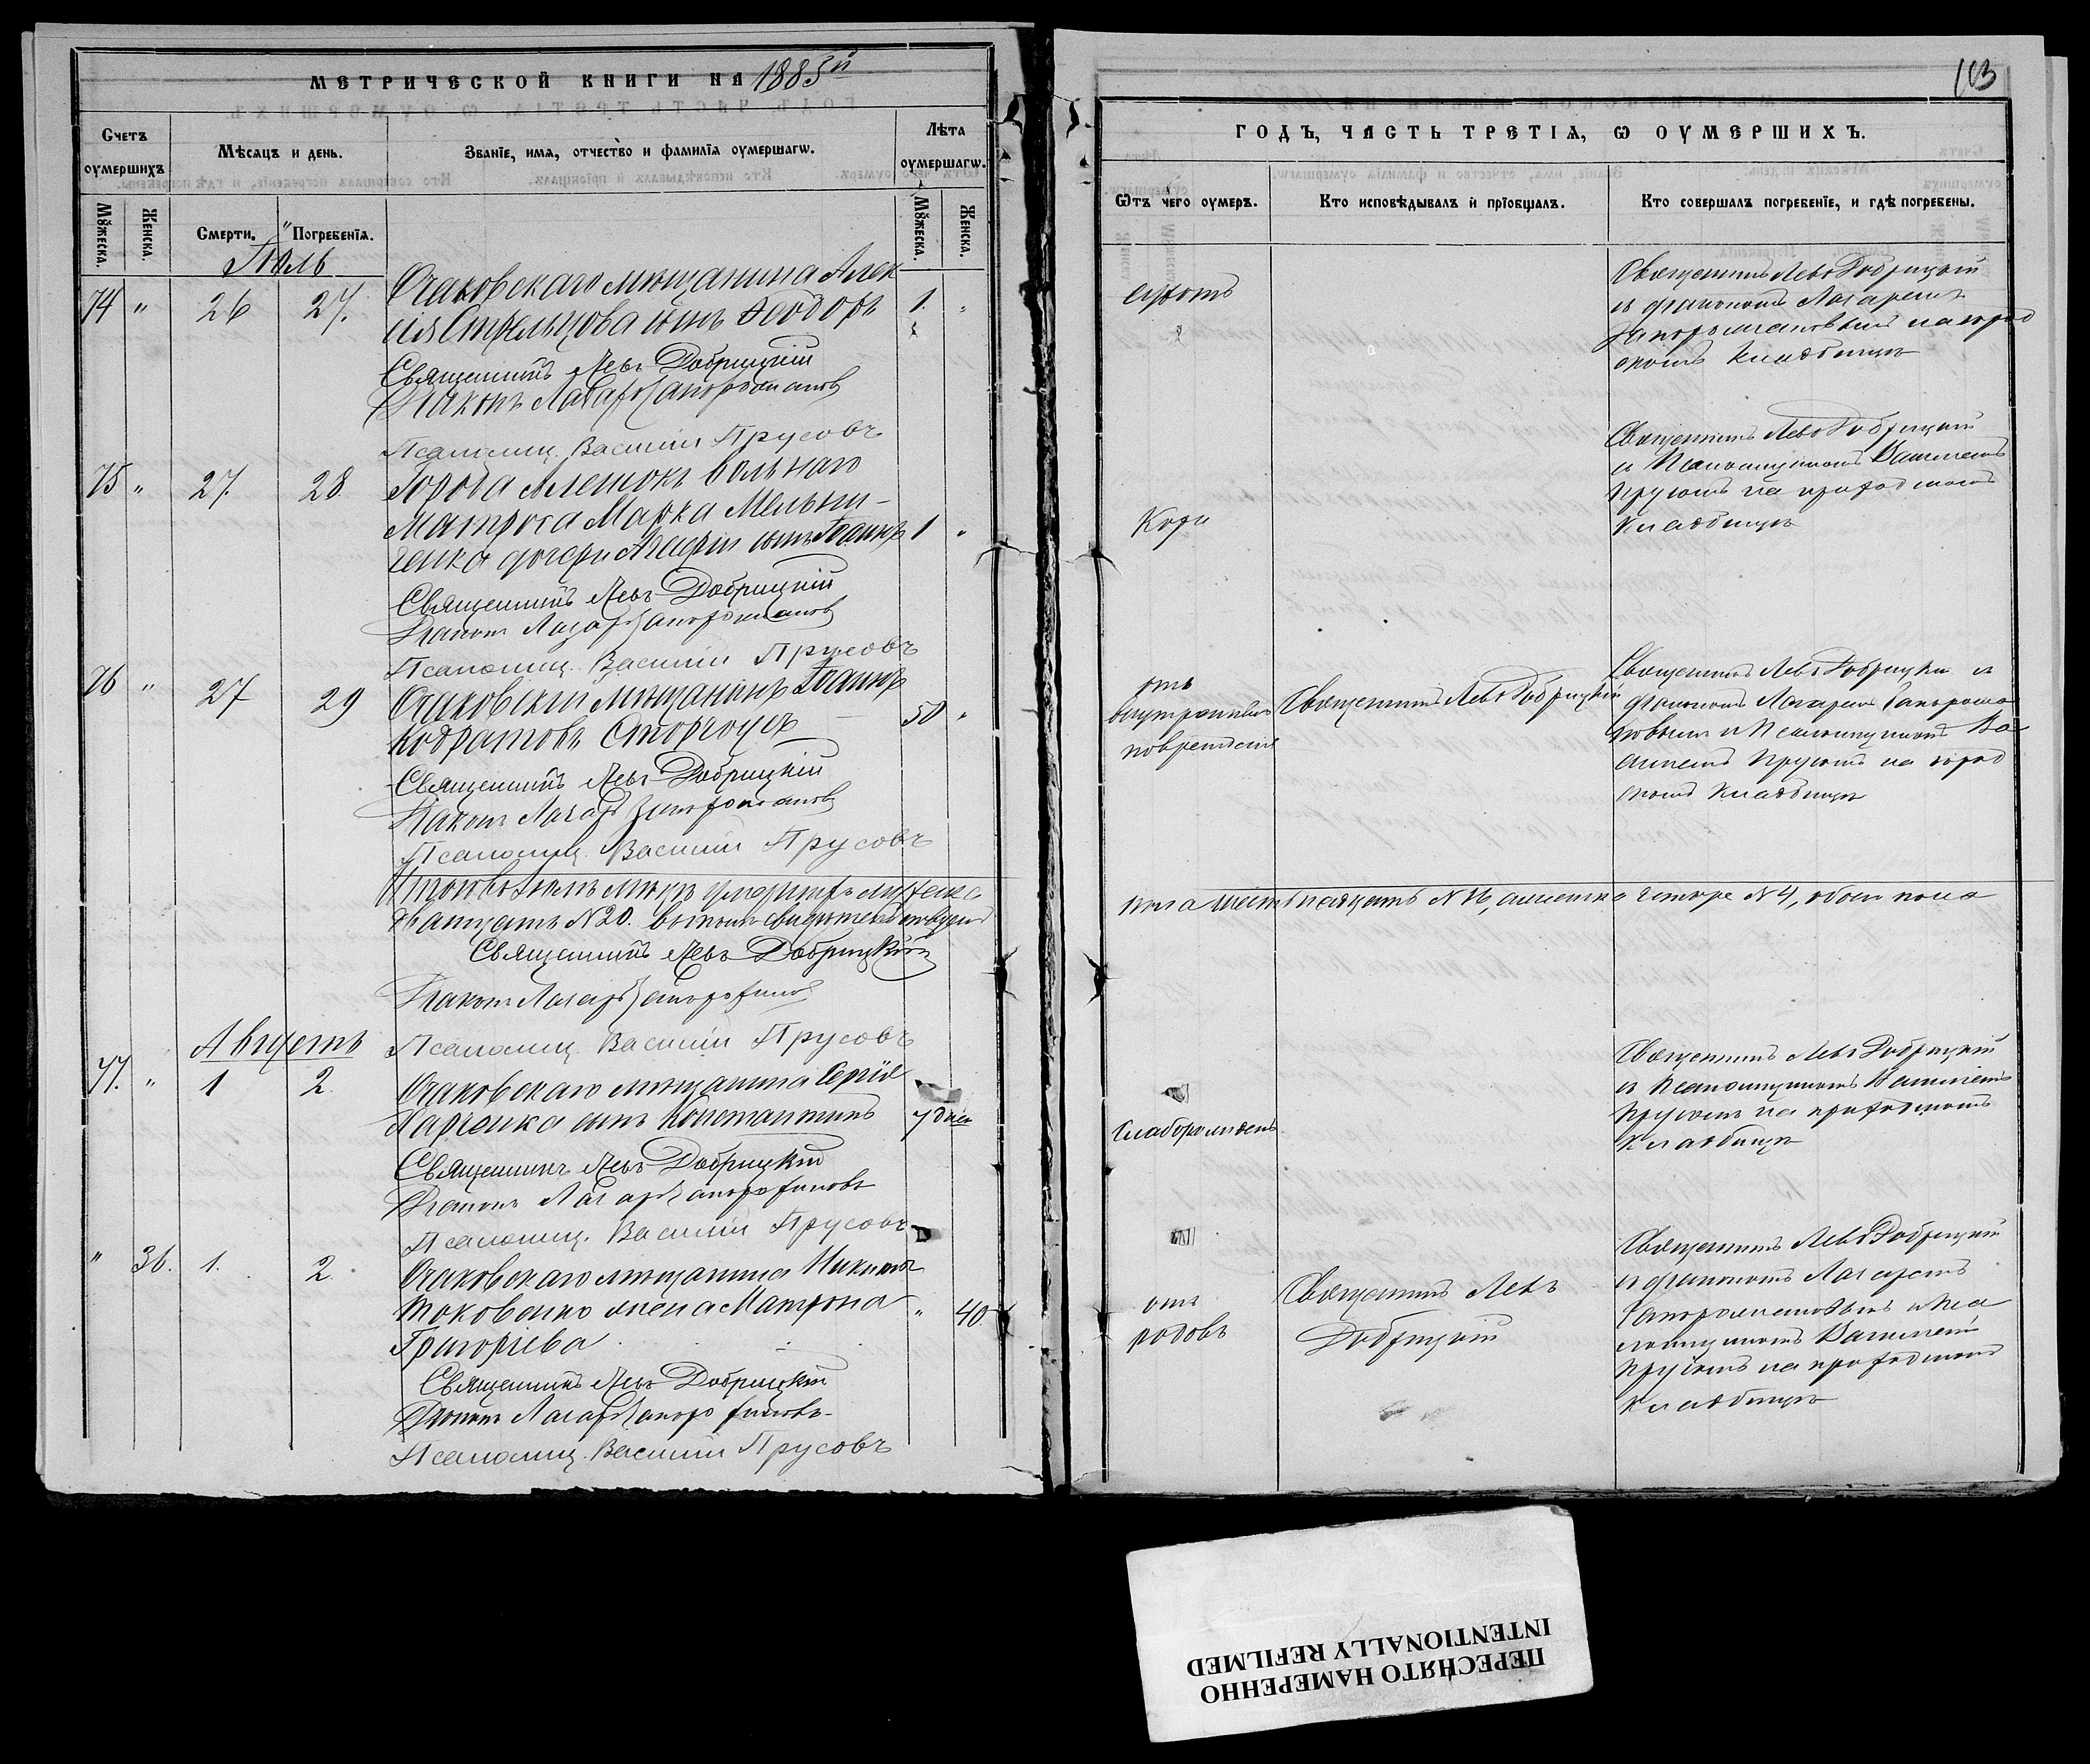 МЕТРИЧЕСКОЙ КНИГИ НА 1885й
Счетъ оумершихъ
Мѣсяцъ и день.
Званіе, имя, отчество и фамилія оумершагѡ.
Лѣта оумершагѡ.
Мꙋжеска.
Женска.
Смерти.
Погребенія.
Мꙋжеска.
Женска.
Іюль
74 " 26 27. Очаковскаго мѣщанина Алек
сія Стрѣльцова сынъ Ѳеодоръ 1. "
Священникъ Левъ Добрицкій
Діаконъ Лазарь Запорожановъ
Псаломщ. Василій Прусовъ
75 " 27. 28 Города Алешокъ вольнаго
матроса Марка Мельни-
ченка дочери сынъ Іоаннъ 1 "
Священникъ Левъ Добрицкій
Діаконъ Лазарь Запорожановъ
Псаломщ. Василій Прусовъ
76 " 27 29 Очаковскій мѣщанинъ Іоаннъ
Кодратовъ 50 "
Священникъ Левъ Добрицкій
Діаконъ Лазарь Запорожановъ
Псаломщ. Василій Прусовъ
Итого въ Іюлѣ умершихъ мужеска
двацать N 20. въ томъ
Священникъ Левъ Добрицкій
Діаконъ Лазарь
Псаломщ. Василій Прусовъ
Августъ
77. " 1 2. Очаковскаго мѣщанина Сергія
Харченка сынъ Константинъ 7 дней
Священникъ Левъ Добрицкій
Діаконъ Лазарь
Псаломщ. Василій Прусовъ
" 36. 1. 2. Очаковскаго мѣщанина Никиты
Токовенко жена Матрона " 40.
Григоріева
Священникъ Левъ Добрицкій
Діаконъ Лазарь
Псаломщ. Василій Прусовъ
113
ГОДЪ, ЧАСТЬ ТРЕТІЯ, Ѡ ОУМЕРШИХЪ.
Ѿтъ чего оумеръ.
Кто исповѣдывалъ и пріобщалъ.
Кто совершалъ погребеніе, и гдѣ погребены.
Священникъ Левъ Добрицкій
и діаконъ Лазаремъ
Запорожановымъ на город
скомъ кладбищѣ
Кори
Священникъ Левъ Добрицкій
и Псаломщикомъ Василіемъ
Прусовъ на приходскомъ
кладбищѣ
отъ
внутреннаго
поврежденія
Священникъ Левъ Добрицкій
Священникъ Левъ Добрицкій и
діаконъ Лазаремъ Запорожа
новымъ и Псаломщикомъ Ва
силіемъ Прусовъ на город
скомъ кладбищѣ
пола шестьнадцать N 16, а женска четыре N 4, обоего пола
Слаборожденъ
Священникъ Левъ Добрицкій
и Псаломщикомъ Василіемъ
Прусовъ на приходскомъ
кладбищѣ
отъ
родовъ
Священникъ Левъ
Добрицкій
Священникъ Левъ Добрицкій
и діакономъ Лазаремъ
Запорожановымъ и Пса
ломщикомъ Василіемъ
Прусовъ на приходскомъ
кладбищѣ
ПЕРЕСНЯТО НАМЕРЕННО
INTENTIONALLY REFILMED